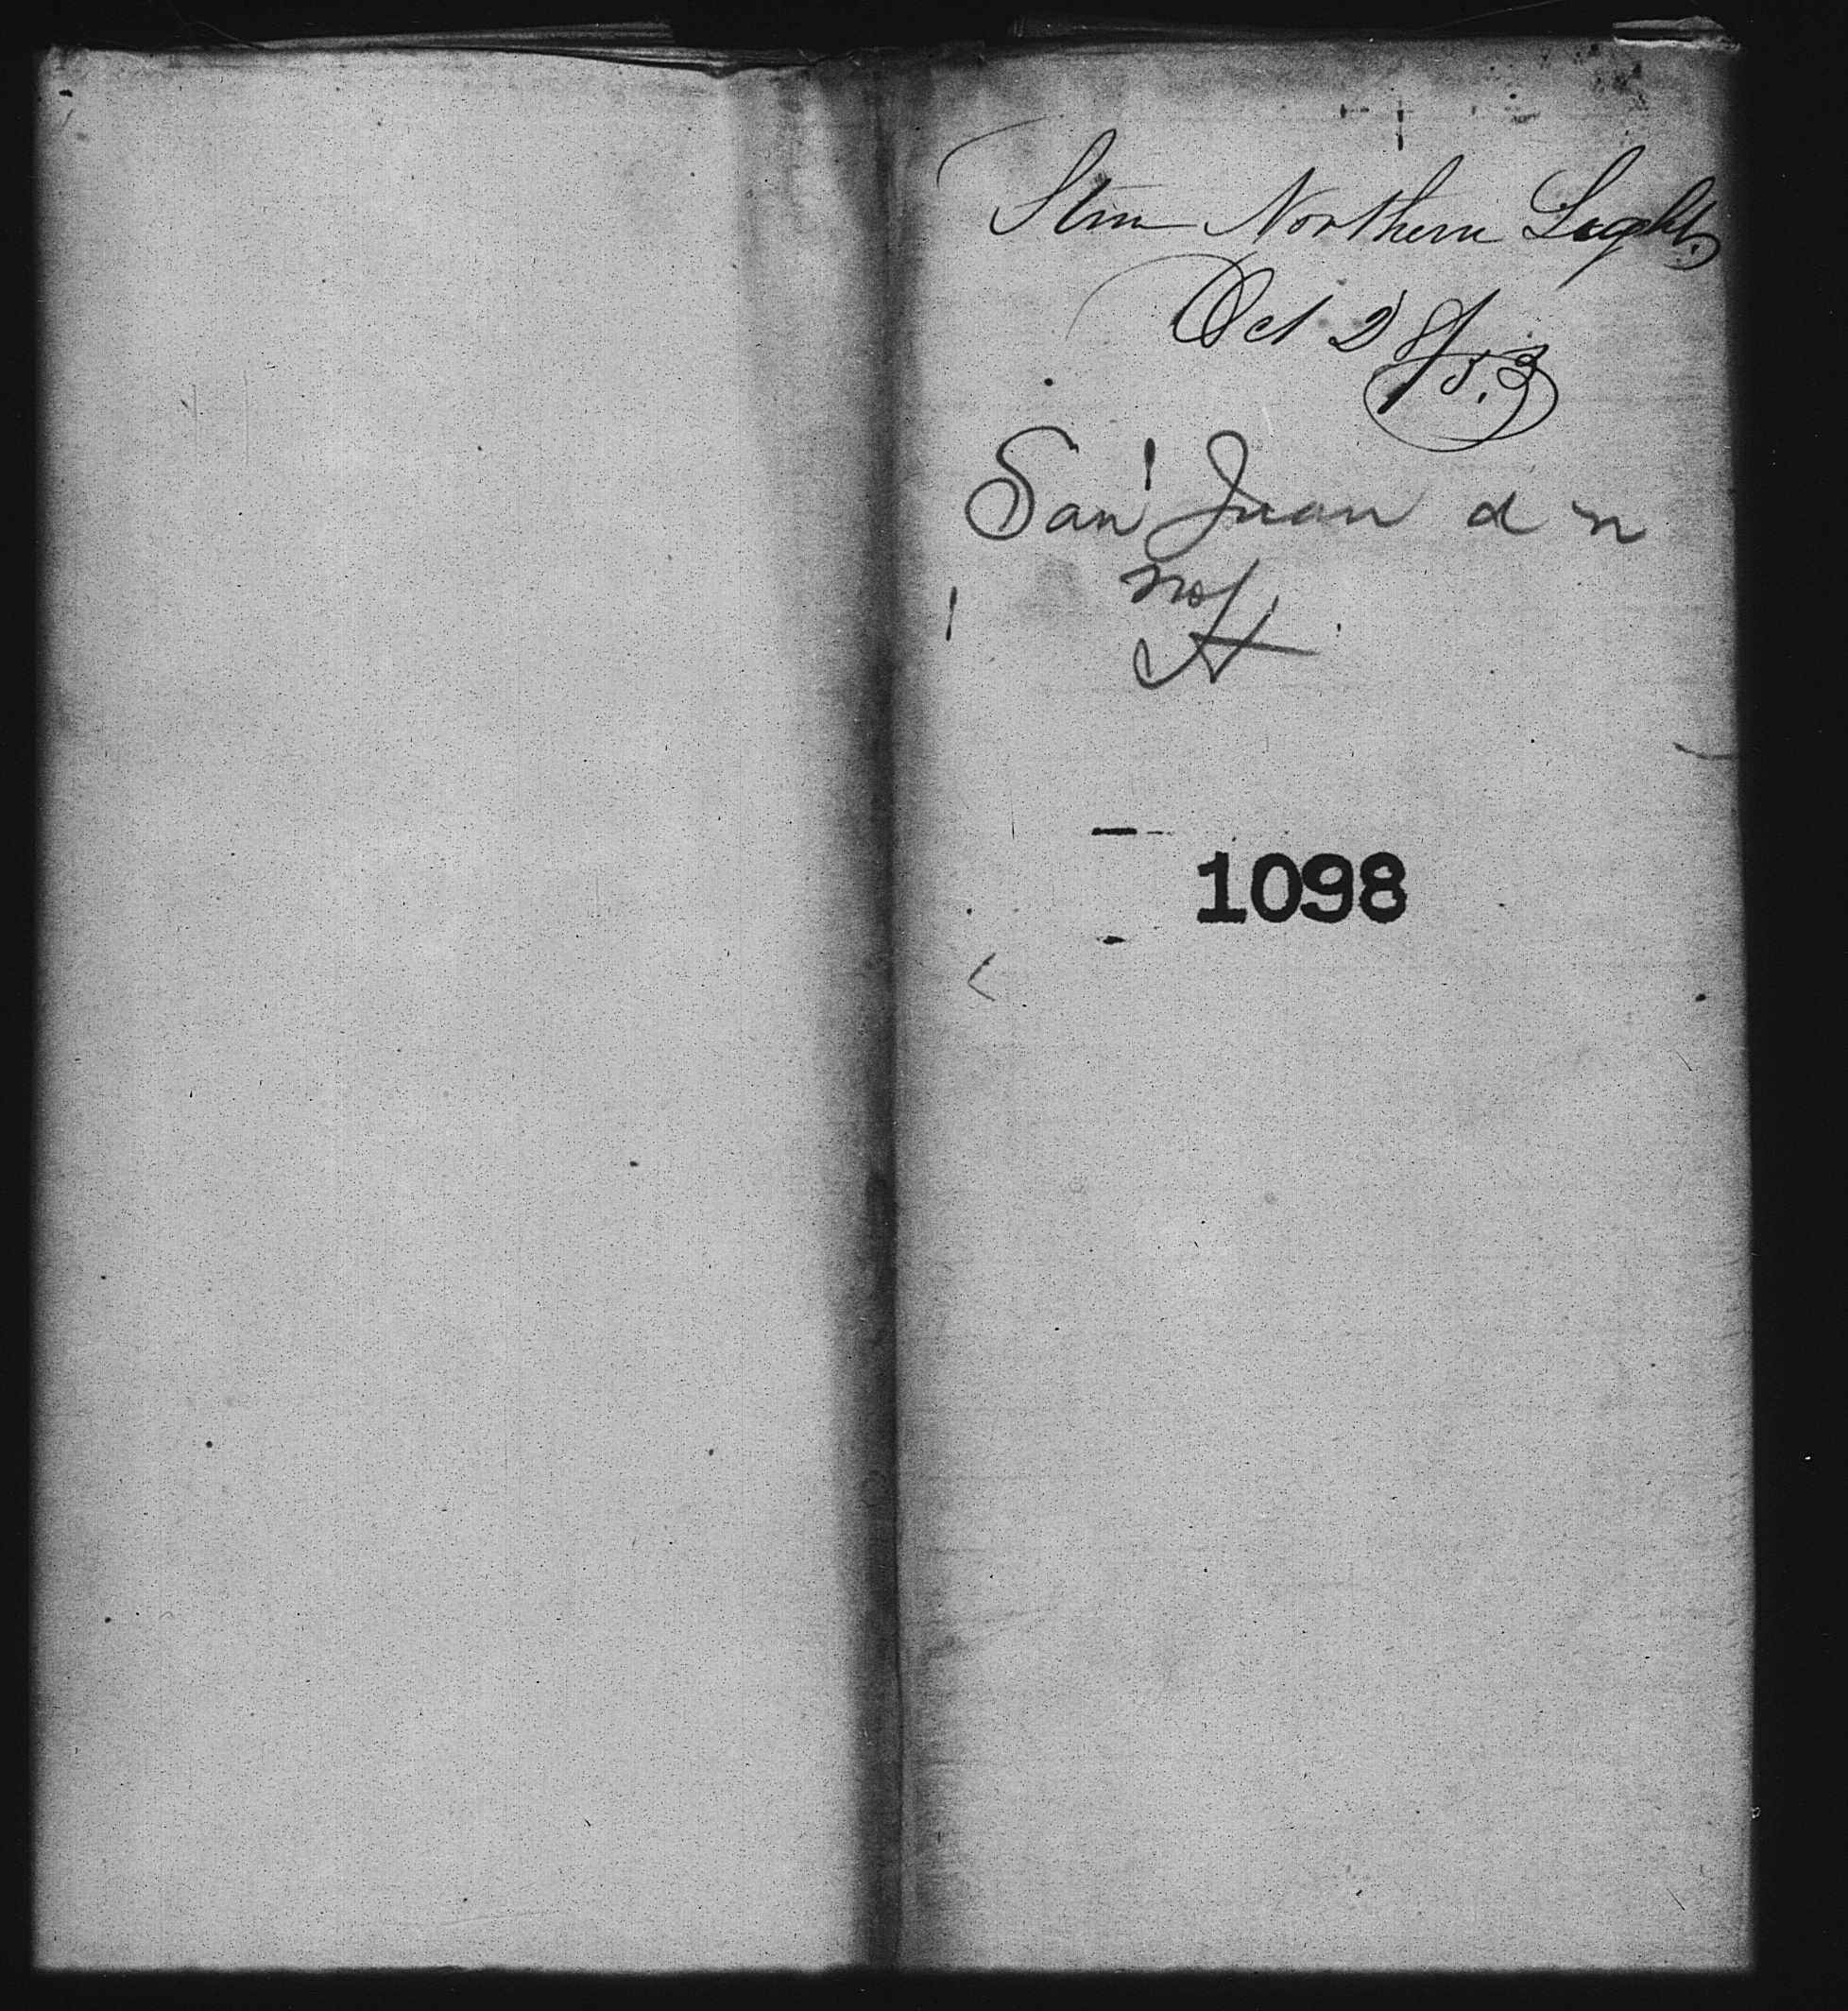 Stmr Northern Light.
Oct 28/53
San Juan d n
1098